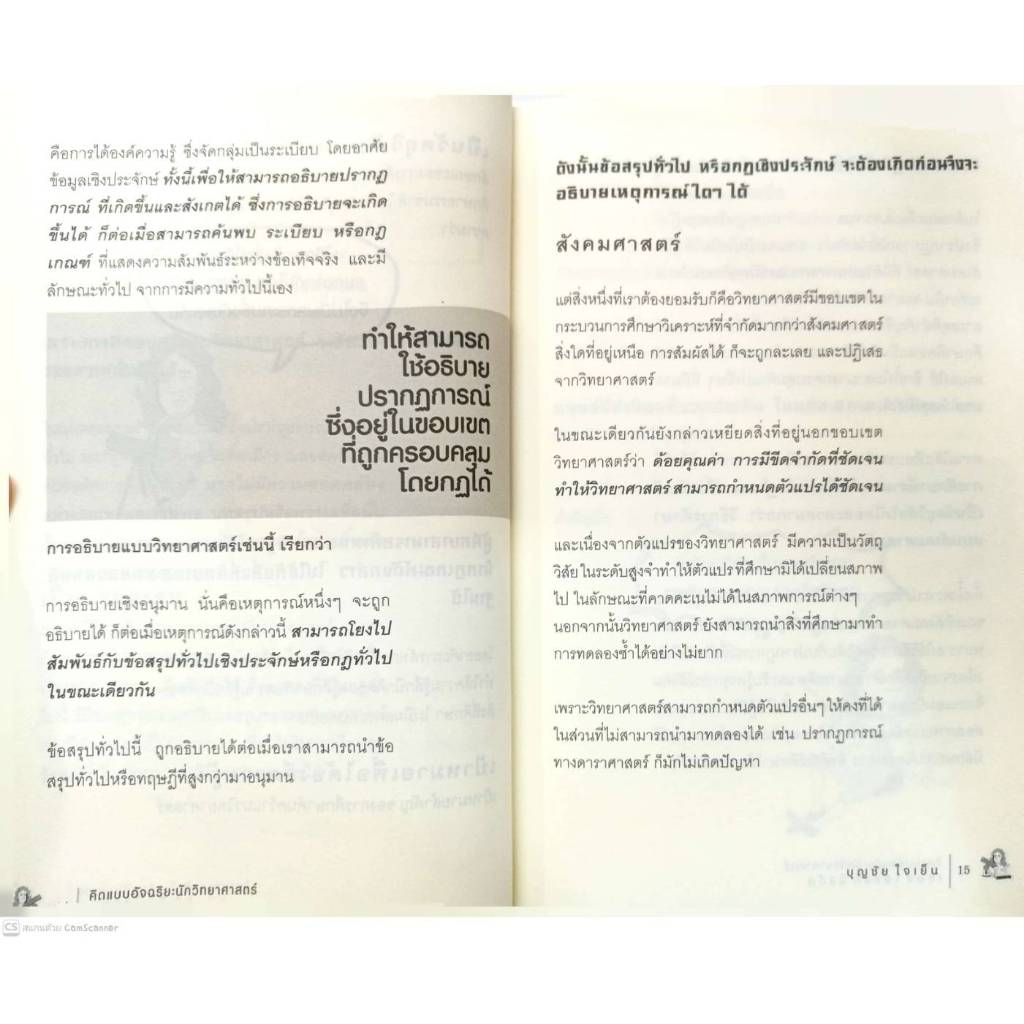 คือการได้องค์ความรู้ ซึ่งจัดกลุ่มเป็นระเบียบ โดยอาศัย
ข้อมูลเชิงประจักษ์ ทั้งนี้เพื่อให้สามารถอธิบายปรากฏ
การณ์ ที่เกิดขึ้นและสังเกตได้ ซึ่งการอธิบายจะเกิด
ขึ้นได้ ก็ต่อเมื่อสามารถค้นพบ ระเบียบ หรือกฎ
เกณฑ์ ที่แสดงความสัมพันธ์ระหว่างข้อเท็จจริง และมี
ลักษณะทั่วไป จากการมีความทั่วไปนี้เอง
ทำให้สามารถ
ใช้อธิบาย
ปรากฏการณ์
ซึ่งอยู่ในขอบเขต
ที่ถูกครอบคลุม
โดยกฎได้
การอธิบายแบบวิทยาศาสตร์เช่นนี้ เรียกว่า
การอธิบายเชิงอนุมาน นั่นคือเหตุการณ์หนึ่งๆ จะถูก
อธิบายได้ ก็ต่อเมื่อเหตุการณ์ดังกล่าวนี้ สามารถโยงไป
สัมพันธ์กับข้อสรุปทั่วไปเชิงประจักษ์หรือกฎทั่วไป
ในขณะเดียวกัน
ข้อสรุปทั่วไปนี้ ถูกอธิบายได้ต่อเมื่อเราสามารถนำข้อ
สรุปทั่วไปหรือทฤษฎีที่สูงกว่ามาอนุมาน
คิดแบบอัจฉริยะนักวิทยาศาสตร์
ดังนั้นข้อสรุปทั่วไป หรือกฎเชิงประจักษ์ จะต้องเกิดก่อนจึงจะ
อธิบายเหตุการณ์ ใดๆ ได้
สังคมศาสตร์
แต่สิ่งหนึ่งที่เราต้องยอมรับก็คือวิทยาศาสตร์มีขอบเขตใน
กระบวนการศึกษาวิเคราะห์ที่จำกัดมากกว่าสังคมศาสตร์
สิ่งใดที่อยู่เหนือ การสัมผัสได้ ก็จะถูกละเลย และปฏิเสธ
จากวิทยาศาสตร์
ในขณะเดียวกันยังกล่าวเหยียดสิ่งที่อยู่นอกขอบเขต
วิทยาศาสตร์ว่า ด้อยคุณค่า การมีขีดจำกัดที่ชัดเจน
ทำให้วิทยาศาสตร์ สามารถกำหนดตัวแปรได้ชัดเจน
และเนื่องจากตัวแปรของวิทยาศาสตร์ มีความเป็นวัตถุ
วิสัย ในระดับสูงจำทำให้ตัวแปร ที่ศึกษามิได้เปลี่ยนสภาพ
ไป ในลักษณะที่คาดคะเนไม่ได้ในสภาพการณ์ต่างๆ
นอกจากนั้นวิทยาศาสตร์ ยังสามารถนำสิ่งที่ศึกษามาทำ
การทดลองซ้ำได้อย่างไม่ยาก
เพราะวิทยาศาสตร์สามารถกำหนดตัวแปรอื่นๆ ให้คงที่ได้
ในส่วนที่ไม่สามารถนำมาทดลองได้ เช่น ปรากฏการณ์
ทางดาราศาสตร์ ก็มักไม่เกิดปัญหา
บุญชัย ใจเย็น 15
CS สแกนด้วย CamScanner